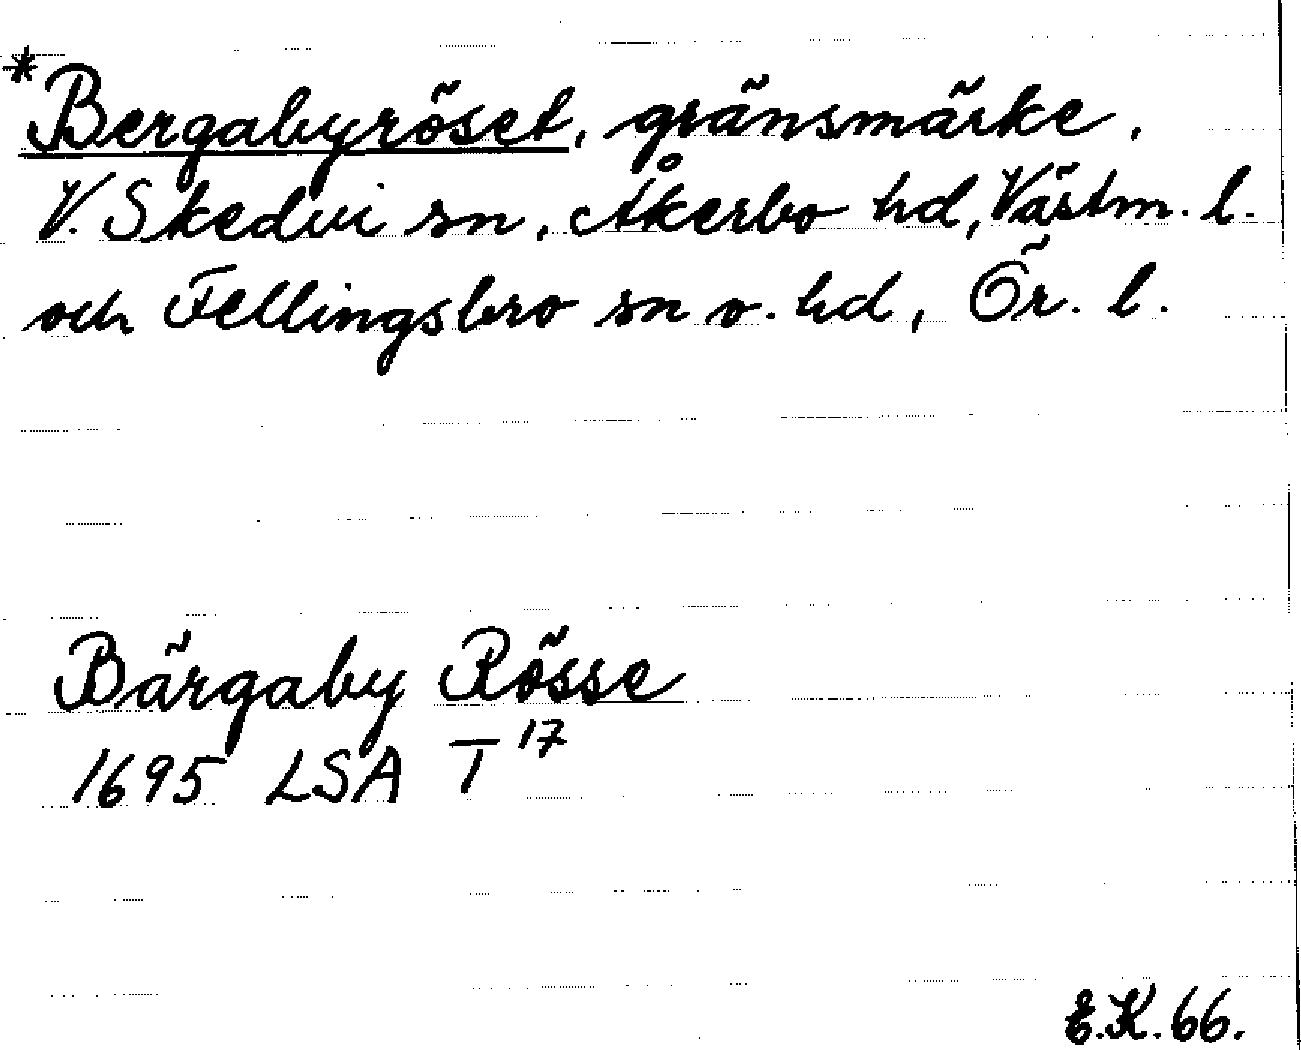 *Bergabyröset, gränsmärke.
V. Skedvi sn, Åkerbo hd, Västm. l.
och Fellingsbro sn o. hd, Ör. l.
Bärgaby Rösse
1695 LSA T 17
E.K. 66.